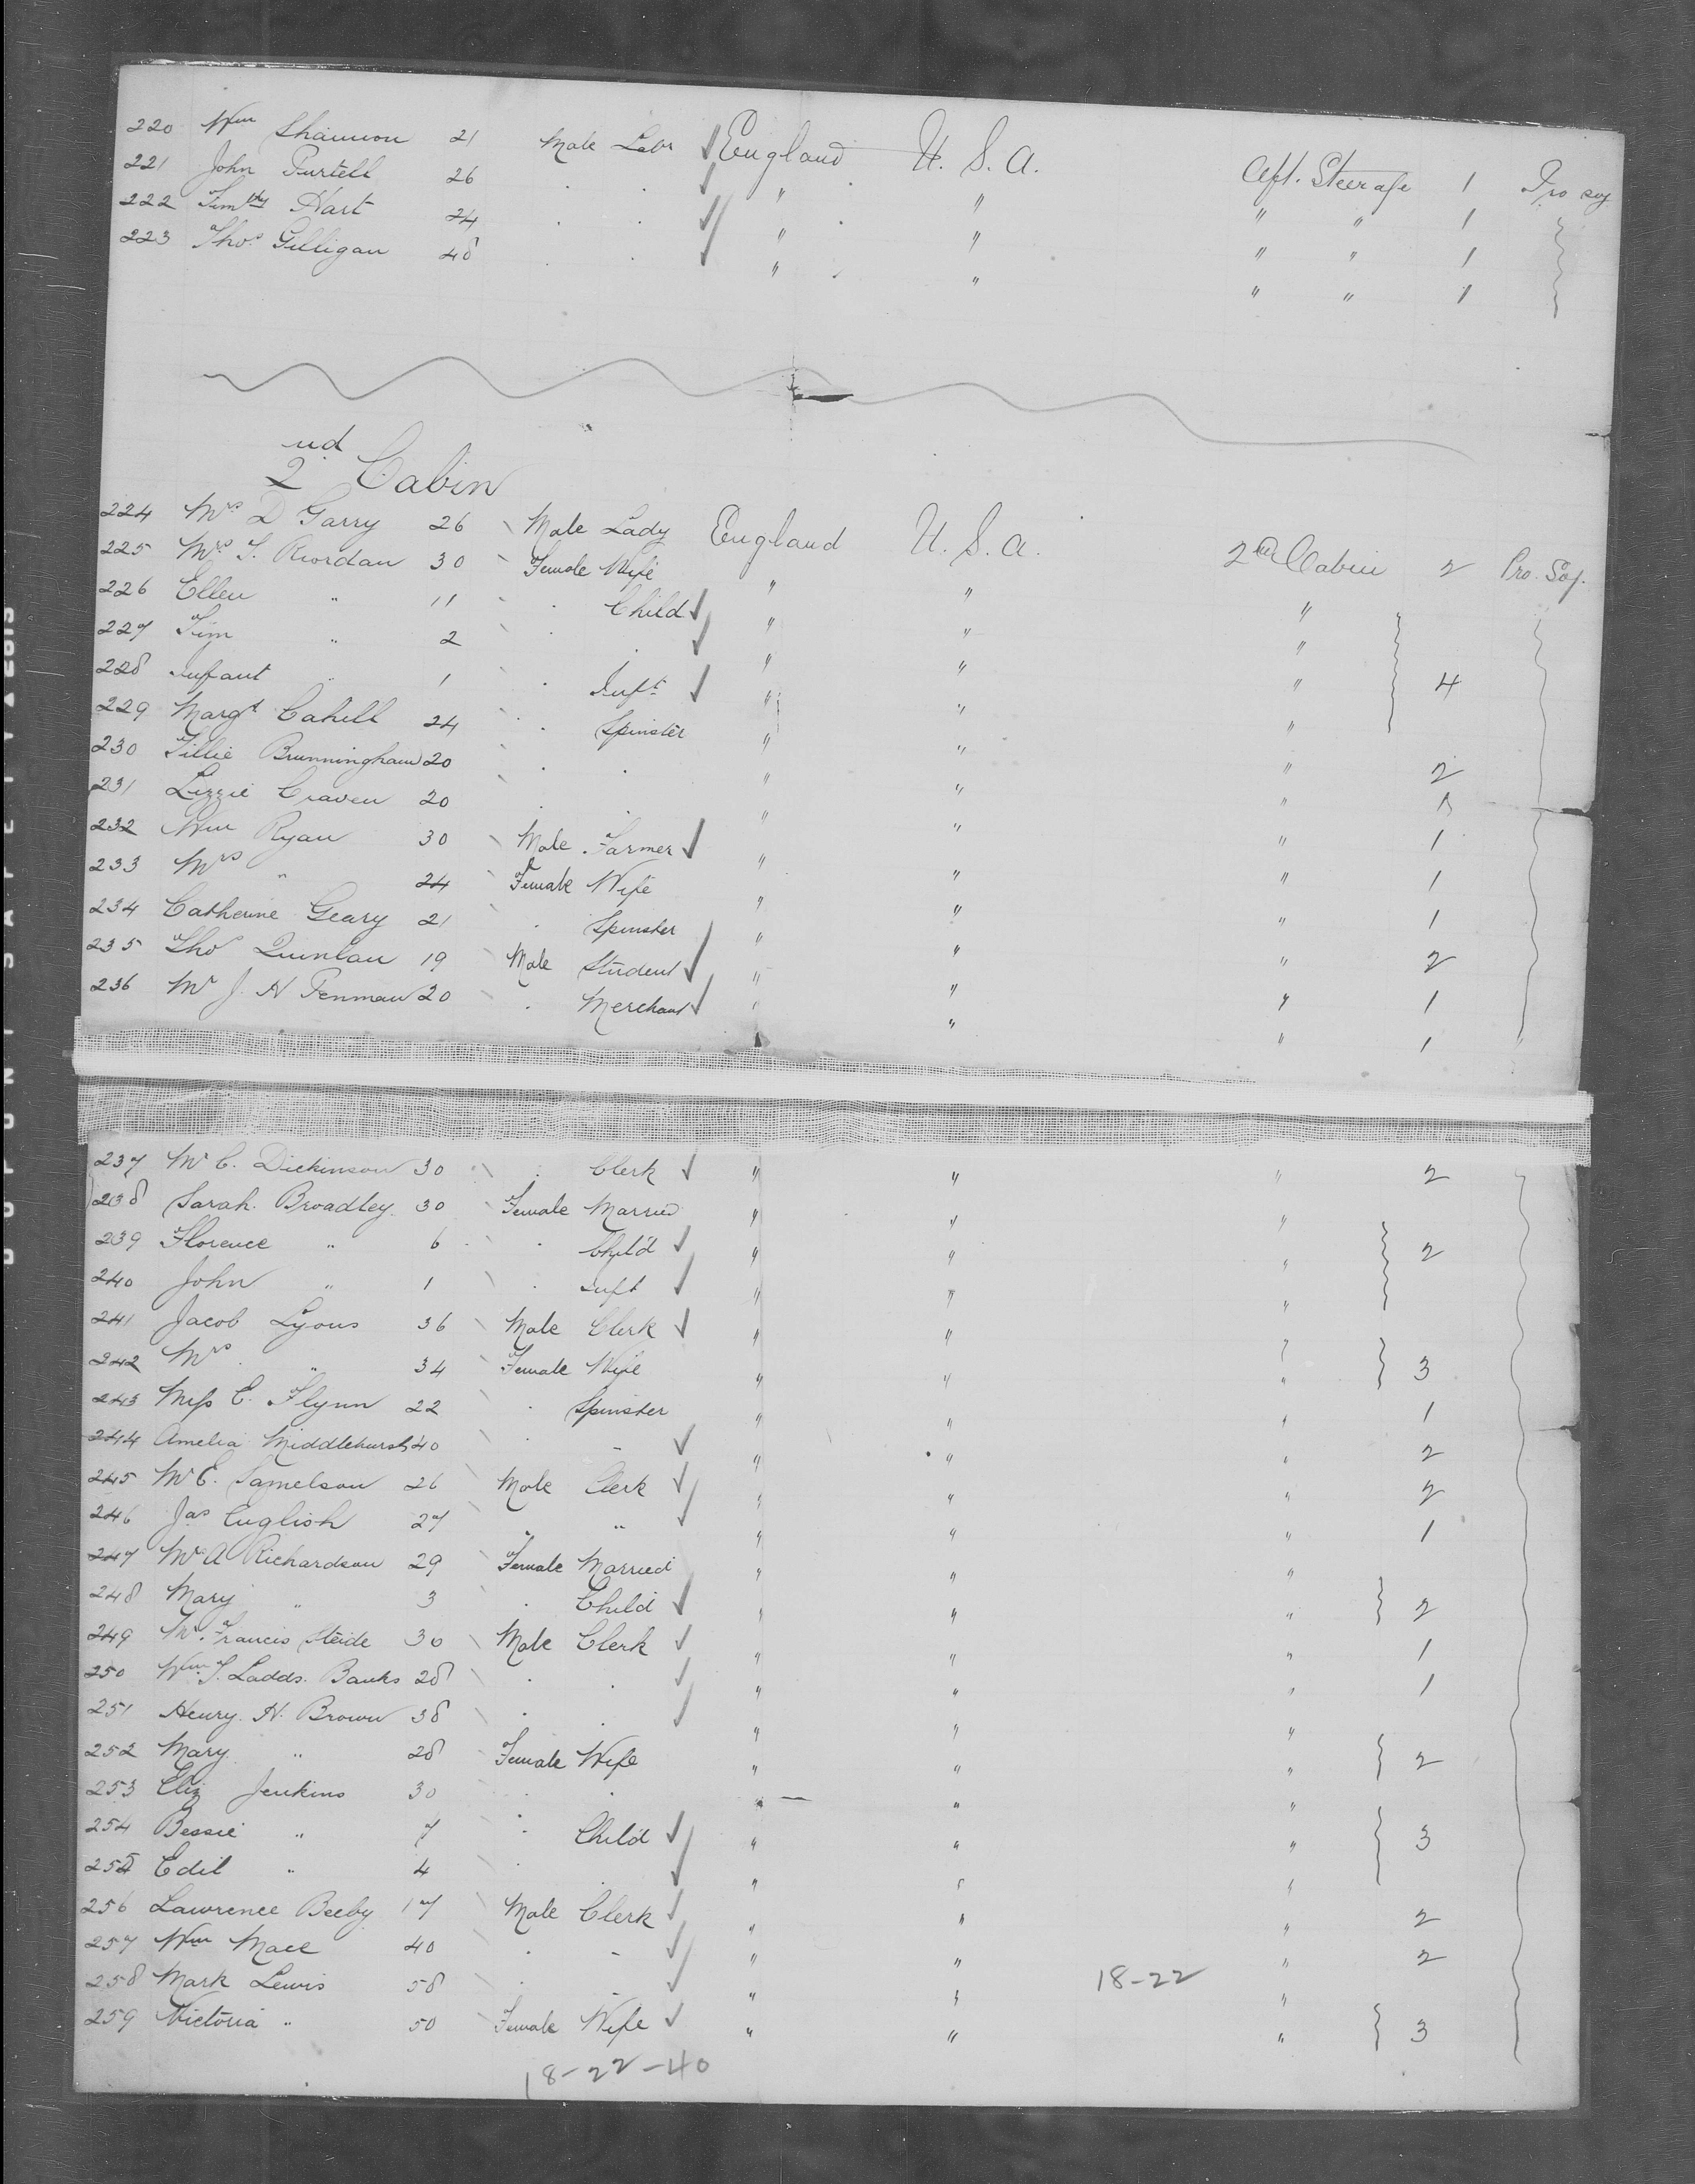 220 Wm Shannon 21 Male Labr England U. S. A. Aft. Steerage 1 Pro soj
221 John Purtell 26 . . " " " " 1
222 Timthy Hart 24 . . " " " " 1
223 Thos Gilligan 48 . . " " " " 1
2nd Cabin
224 Mrs D Garry 26 Male Lady England U. S. A. 2nd Cabin 2 Pro. Soj.
225 Mrs T. Riordan 30 Female Wife " " "
226 Ellen " 11 . Child " " "
227 Tim " 2 . . " " " 4
228 Infant " 1 . Inft " " "
229 Margt Cahill 24 . Spinster " " " 2
230 Tillie Brunningham 20 . . " " "
231 Lizzie Craven 20 . . " " " 1
232 Wm Ryan 30 Male Farmer " " " 1
233 Mrs " 24 Female Wife " " " 1
234 Catherine Geary 21 . Spinster " " " 2
235 Thos Quinlan 19 Male Student " " " 1
236 Mr J. H Penman 20 . Merchant " " " 1
237 Mr C. Dickinson 30 . Clerk " " " 2
238 Sarah Broadley 30 Female Married " " "
239 Florence " 6 . Child " " " 2
240 John " 1 . Inft " " "
241 Jacob Lyons 36 Male Clerk " " "
242 Mrs " 34 Female Wife " " " 3
243 Miss E. Flynn 22 . Spinster " " " 1
244 Amelia Middlehurst 40 . " " " 2
245 Mr E. Samelson 26 Male Clerk " " " 2
246 Jas English 27 " " " " " 1
247 Mrs A Richardson 29 Female Married " " "
248 Mary " 3 . Child " " " 2
249 Mr. Francis Steide 36 Male Clerk " " " 1
250 Wm T. Ladds. Banks 28 . . " " " 1
251 Henry. H. Brown 38 . . " " "
252 Mary " 28 Female Wife " " " 2
253 Eliz Jenkins 30 . . " " "
254 Bessie " 7 . Child " " " 3
255 Edil " 4 . . " " "
256 Lawrence Beeby 17 Male Clerk " " " 2
257 Wm Mace 40 . " " " 2
258 Mark Lewis 58 . " " 18-22 "
259 Victoria " 50 Female Wife " " " 3
18-22-40